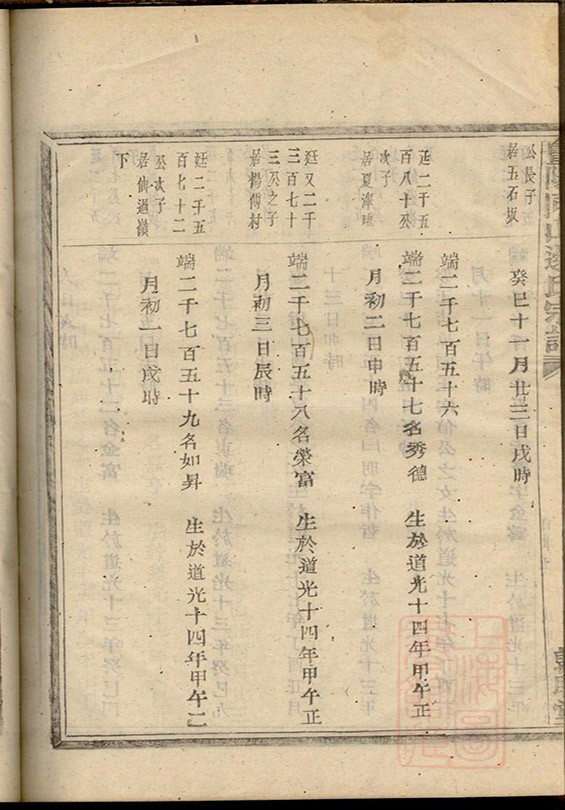 公長子
居五石坂
癸巳十一月廿三日戌時
端二千七百五十六
廷二千五
百八十公
次子
端二千七百五十七名秀德 生於道光十四年甲午正
月初二日申時
廷又二千
三百七十
三公之子
居楊傅村
端二千七百五十八名榮富 生於道光十四年甲午正
月初三日辰時
廷二千五
百七十二
公次子
居仙過嶺
下
端二千七百五十九名如昇 生於道光十四年甲午二
月初一日戌時